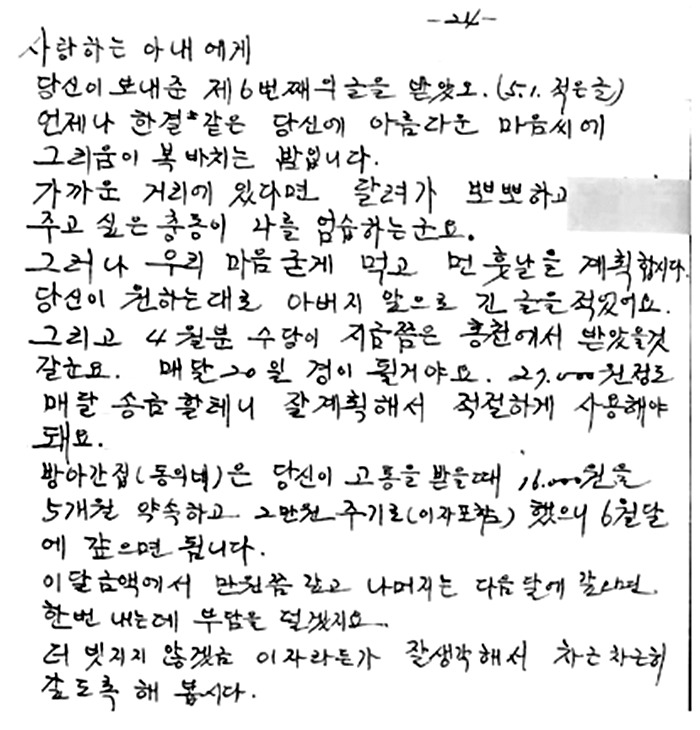 -24-
사랑하는 아내에게
당신이 보내준 제6번째의 글을 받았오. (5.1. 적은글)
언제나 한결같은 당신에 아름다운 마음씨에
그리움이 복바치는 밤입니다.
가까운 거리에 있다면 달려가 뽀뽀하고
주고 싶은 충동이 나를 엄습하는군요.
그러나 우리 마음굳게 먹고 먼 훗날을 계획합시다.
당신이 원하는대로 아버지 앞으로 긴 글을 적었어요.
그리고 4월분 수당이 지금쯤은 홍천에서 받았을것
같군요. 매달 20일 경이 될거야요. 27,000원정도
매달 송금 할테니 잘계획해서 적절하게 사용해야
돼요.
방아간집(동의네)은 당신이 고통을 받을때 16,000원을
5개월 약속하고 2만원 주기로(이자포함) 했으니 6월달
에 갚으면 됩니다.
이달 금액에서 만원쯤 갚고 나머지는 다음달에 갚으면
한번 내는데 부담은 덜겠지요.
더 빗지지 않겠금 이자라든가 잘생각해서 차근차근히
갚도록 해 봅시다.